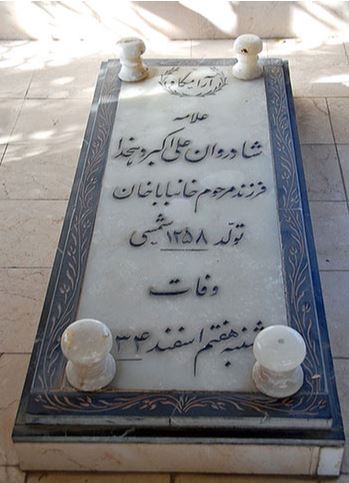 آرامگاه
علامه
شادروان علی اکبر دهخدا
فرزند مرحوم خانباباخان
تولد ۱۲۵۸ شمسی
وفات
شنبه هفتم اسفند ۳۴